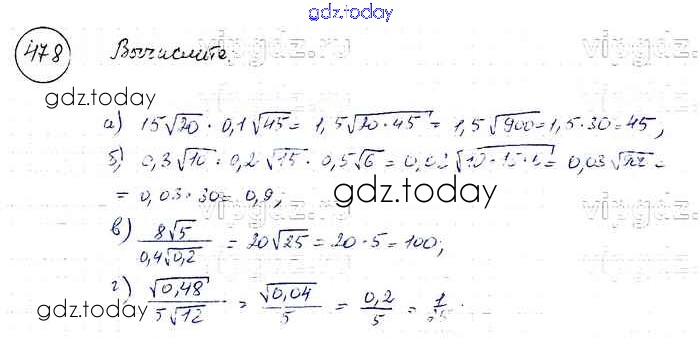 gdz.today
478 Вычислите.
vipgdz.ru
gdz.today
а) 15√20 · 0,1√45 = 1,5√20·45 = 1,5√900 = 1,5·30 = 45;
б) 0,3√10 · 0,2√15 · 0,5√6 = 0,03√10·15·6 = 0,03 =
= 0,03·30 = 0,9;
gdz.today
в) 8√5 / 0,4√0,2 = 20√25 = 20·5 = 100;
г) √0,48 / 5√12 = √0,04 / 5 = 0,2 / 5 =
gdz.today
gdz.today